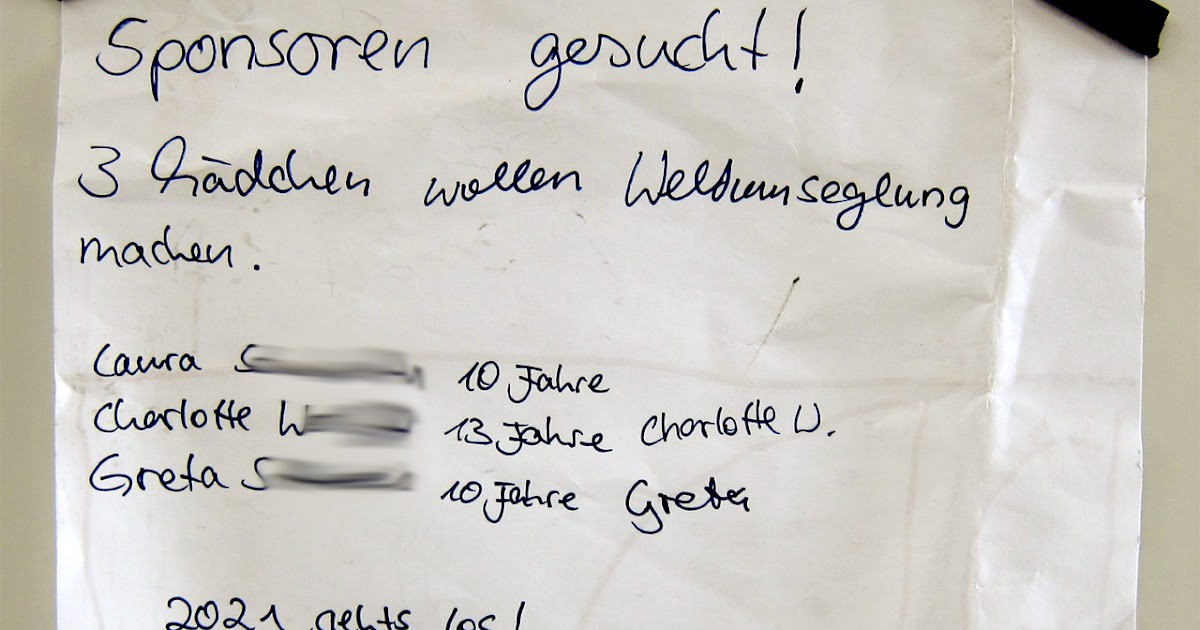 Sponsoren gesucht!
3 Mädchen wollen Weltumseglung
machen.
Laura S 10 Jahre
Charlotte W 13 Jahre Charlotte W.
Greta S 10 Jahre Greta
2021 gehts los!